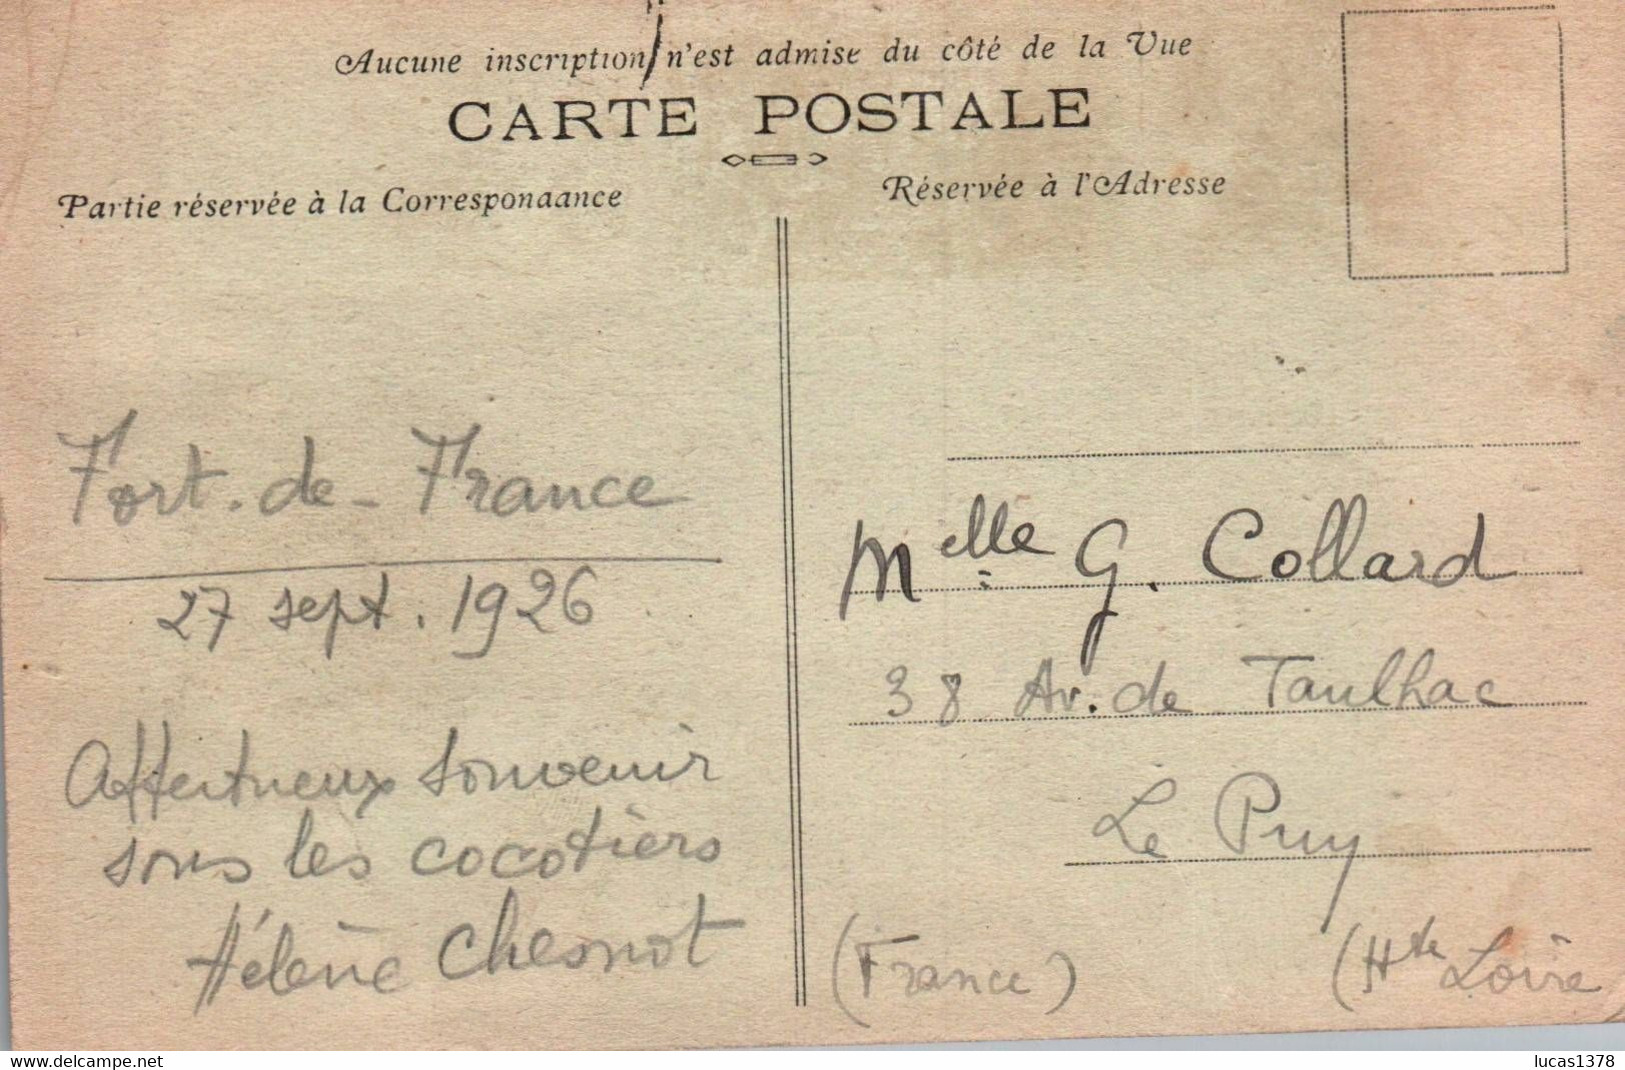 Aucune inscription n'est admise du côté de la Vue
CARTE POSTALE
Partie réservée à la Correspondance
Réservée à l'Adresse
Fort-de-France
27 sept. 1926
Affectueux souvenir
sous les cocotiers
Hélène Chesnot
Melle G. Collard
38 Av. de Taulhac
Le Puy
(France) (Hte Loire
www.delcampe.net
lucas1378